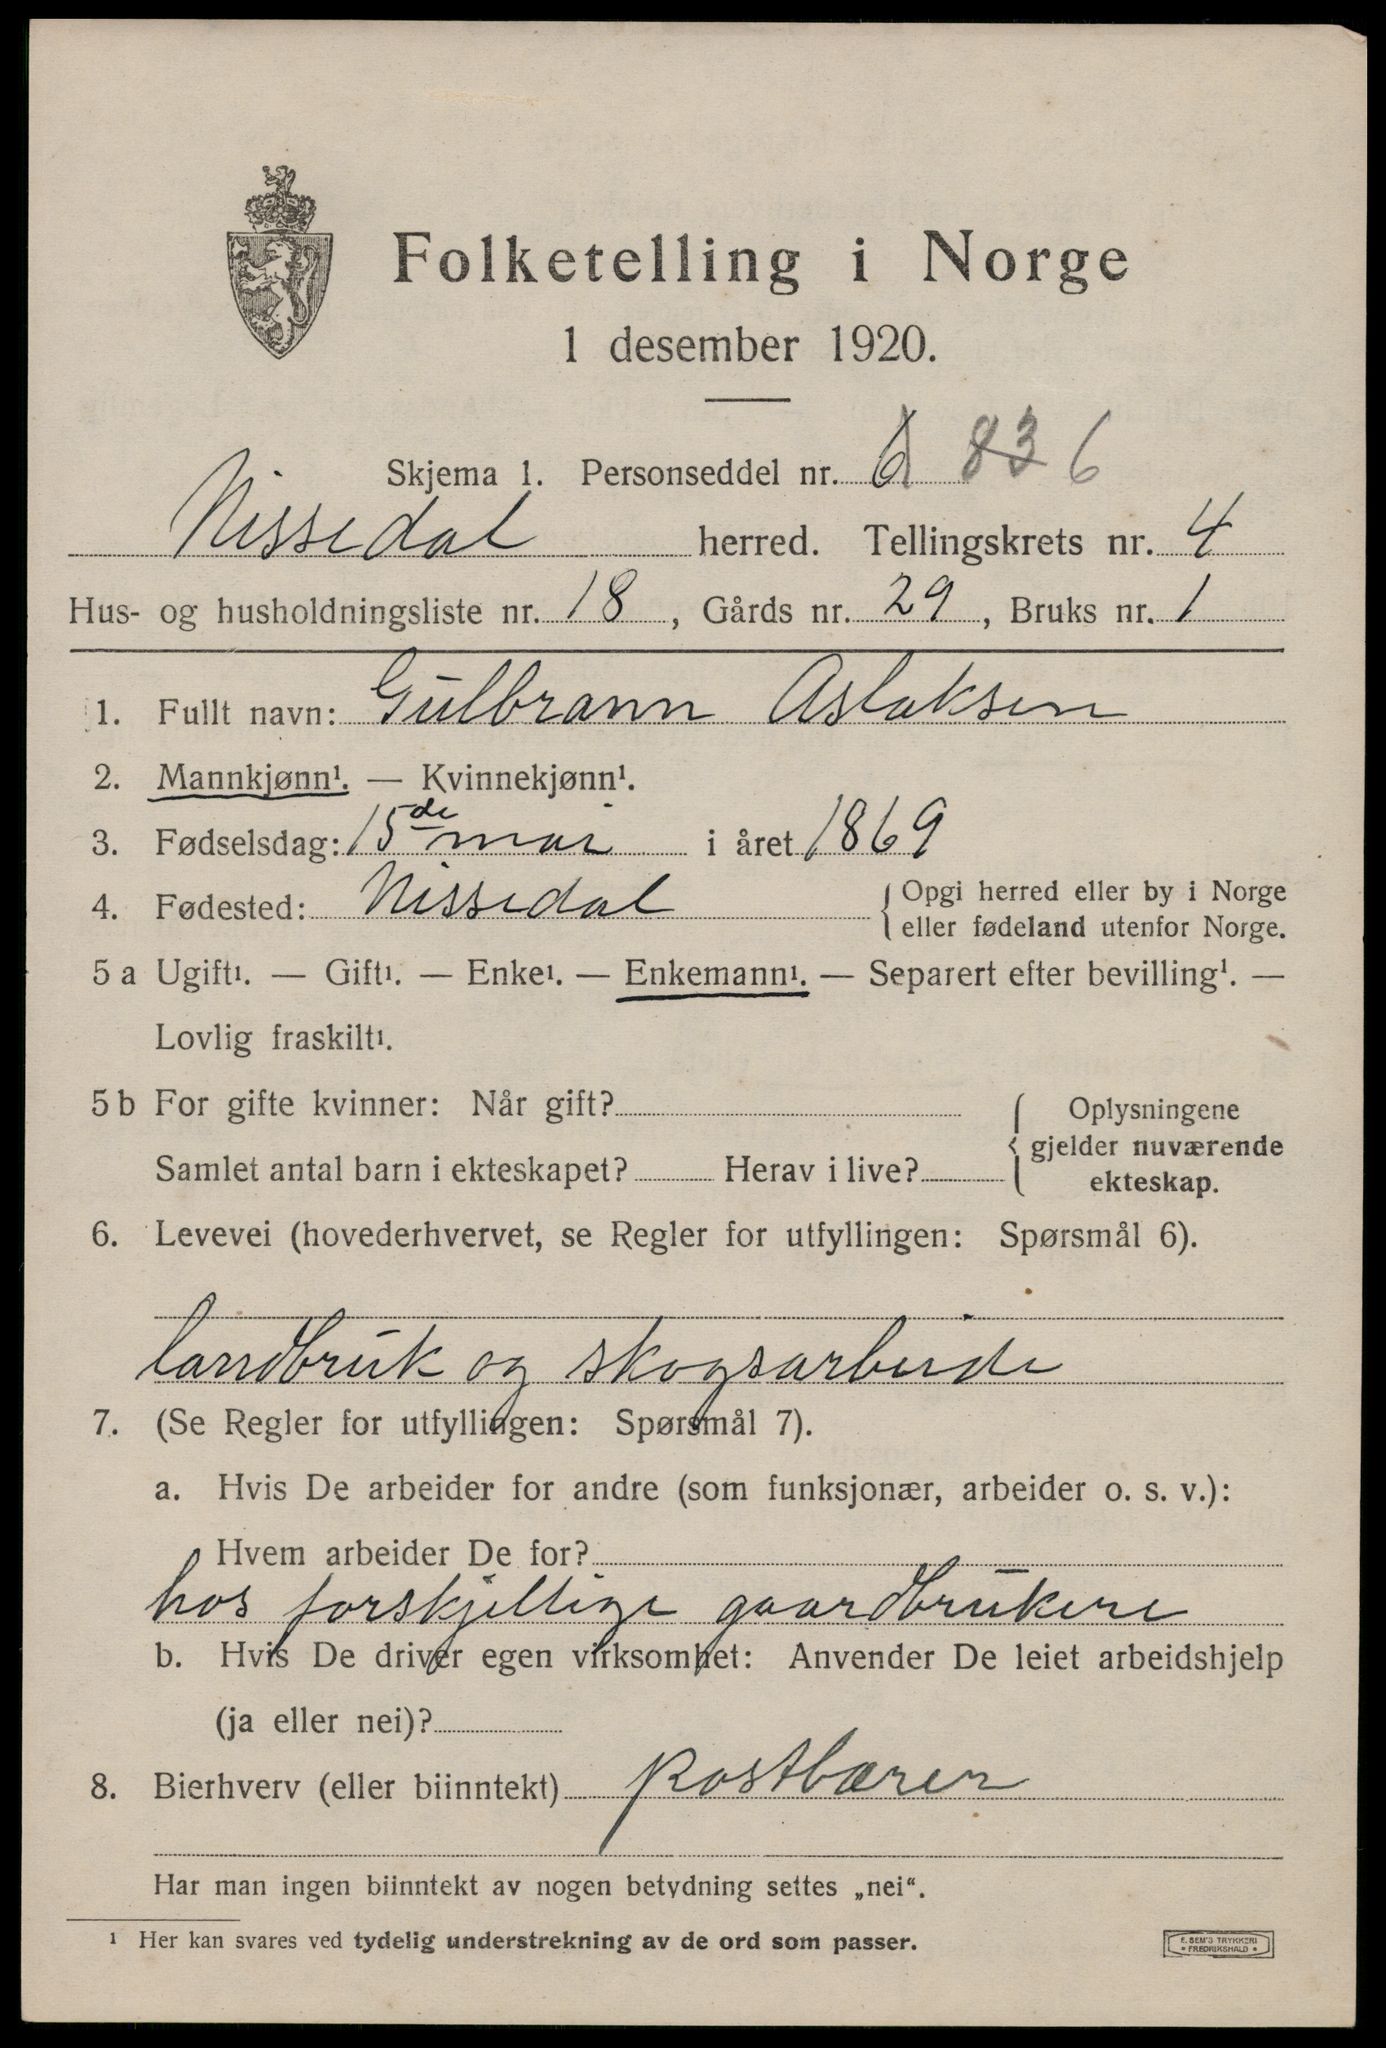 Folketelling i Norge
1 desember 1920.
Skjema 1. Personseddel nr. 6 83 6
Nissedal herred. Tellingskrets nr. 4
Hus- og husholdningsliste nr. 18, Gårds nr. 29, Bruks nr. 1
1. Fullt navn: Gulbrann Aslaksen
2. Mannkjønn¹. — Kvinnekjønn¹.
3. Fødselsdag: 15de mai i året 1869
4. Fødested: Nissedal { Opgi herred eller by i Norge
eller fødeland utenfor Norge.
5 a Ugift¹. — Gift¹. — Enke¹. — Enkemann¹. — Separert efter bevilling¹. —
Lovlig fraskilt¹.
5 b For gifte kvinner: Når gift? { Oplysningene
gjelder nuværende
Samlet antal barn i ekteskapet? Herav i live? ekteskap.
6. Levevei (hovederhvervet, se Regler for utfyllingen: Spørsmål 6).
landbruk og skogsarbeide
7. (Se Regler for utfyllingen: Spørsmål 7).
a. Hvis De arbeider for andre (som funksjonær, arbeider o. s. v.):
Hvem arbeider De for?
hos forskjellige gaardbrukere
b. Hvis De driver egen virksomhet: Anvender De leiet arbeidshjelp
(ja eller nei)?
8. Bierhverv (eller biinntekt) postbærer
Har man ingen biinntekt av nogen betydning settes „nei“.
¹ Her kan svares ved tydelig understrekning av de ord som passer.
E. SEM'S TRYKKERI
• FREDRIKSHALD •